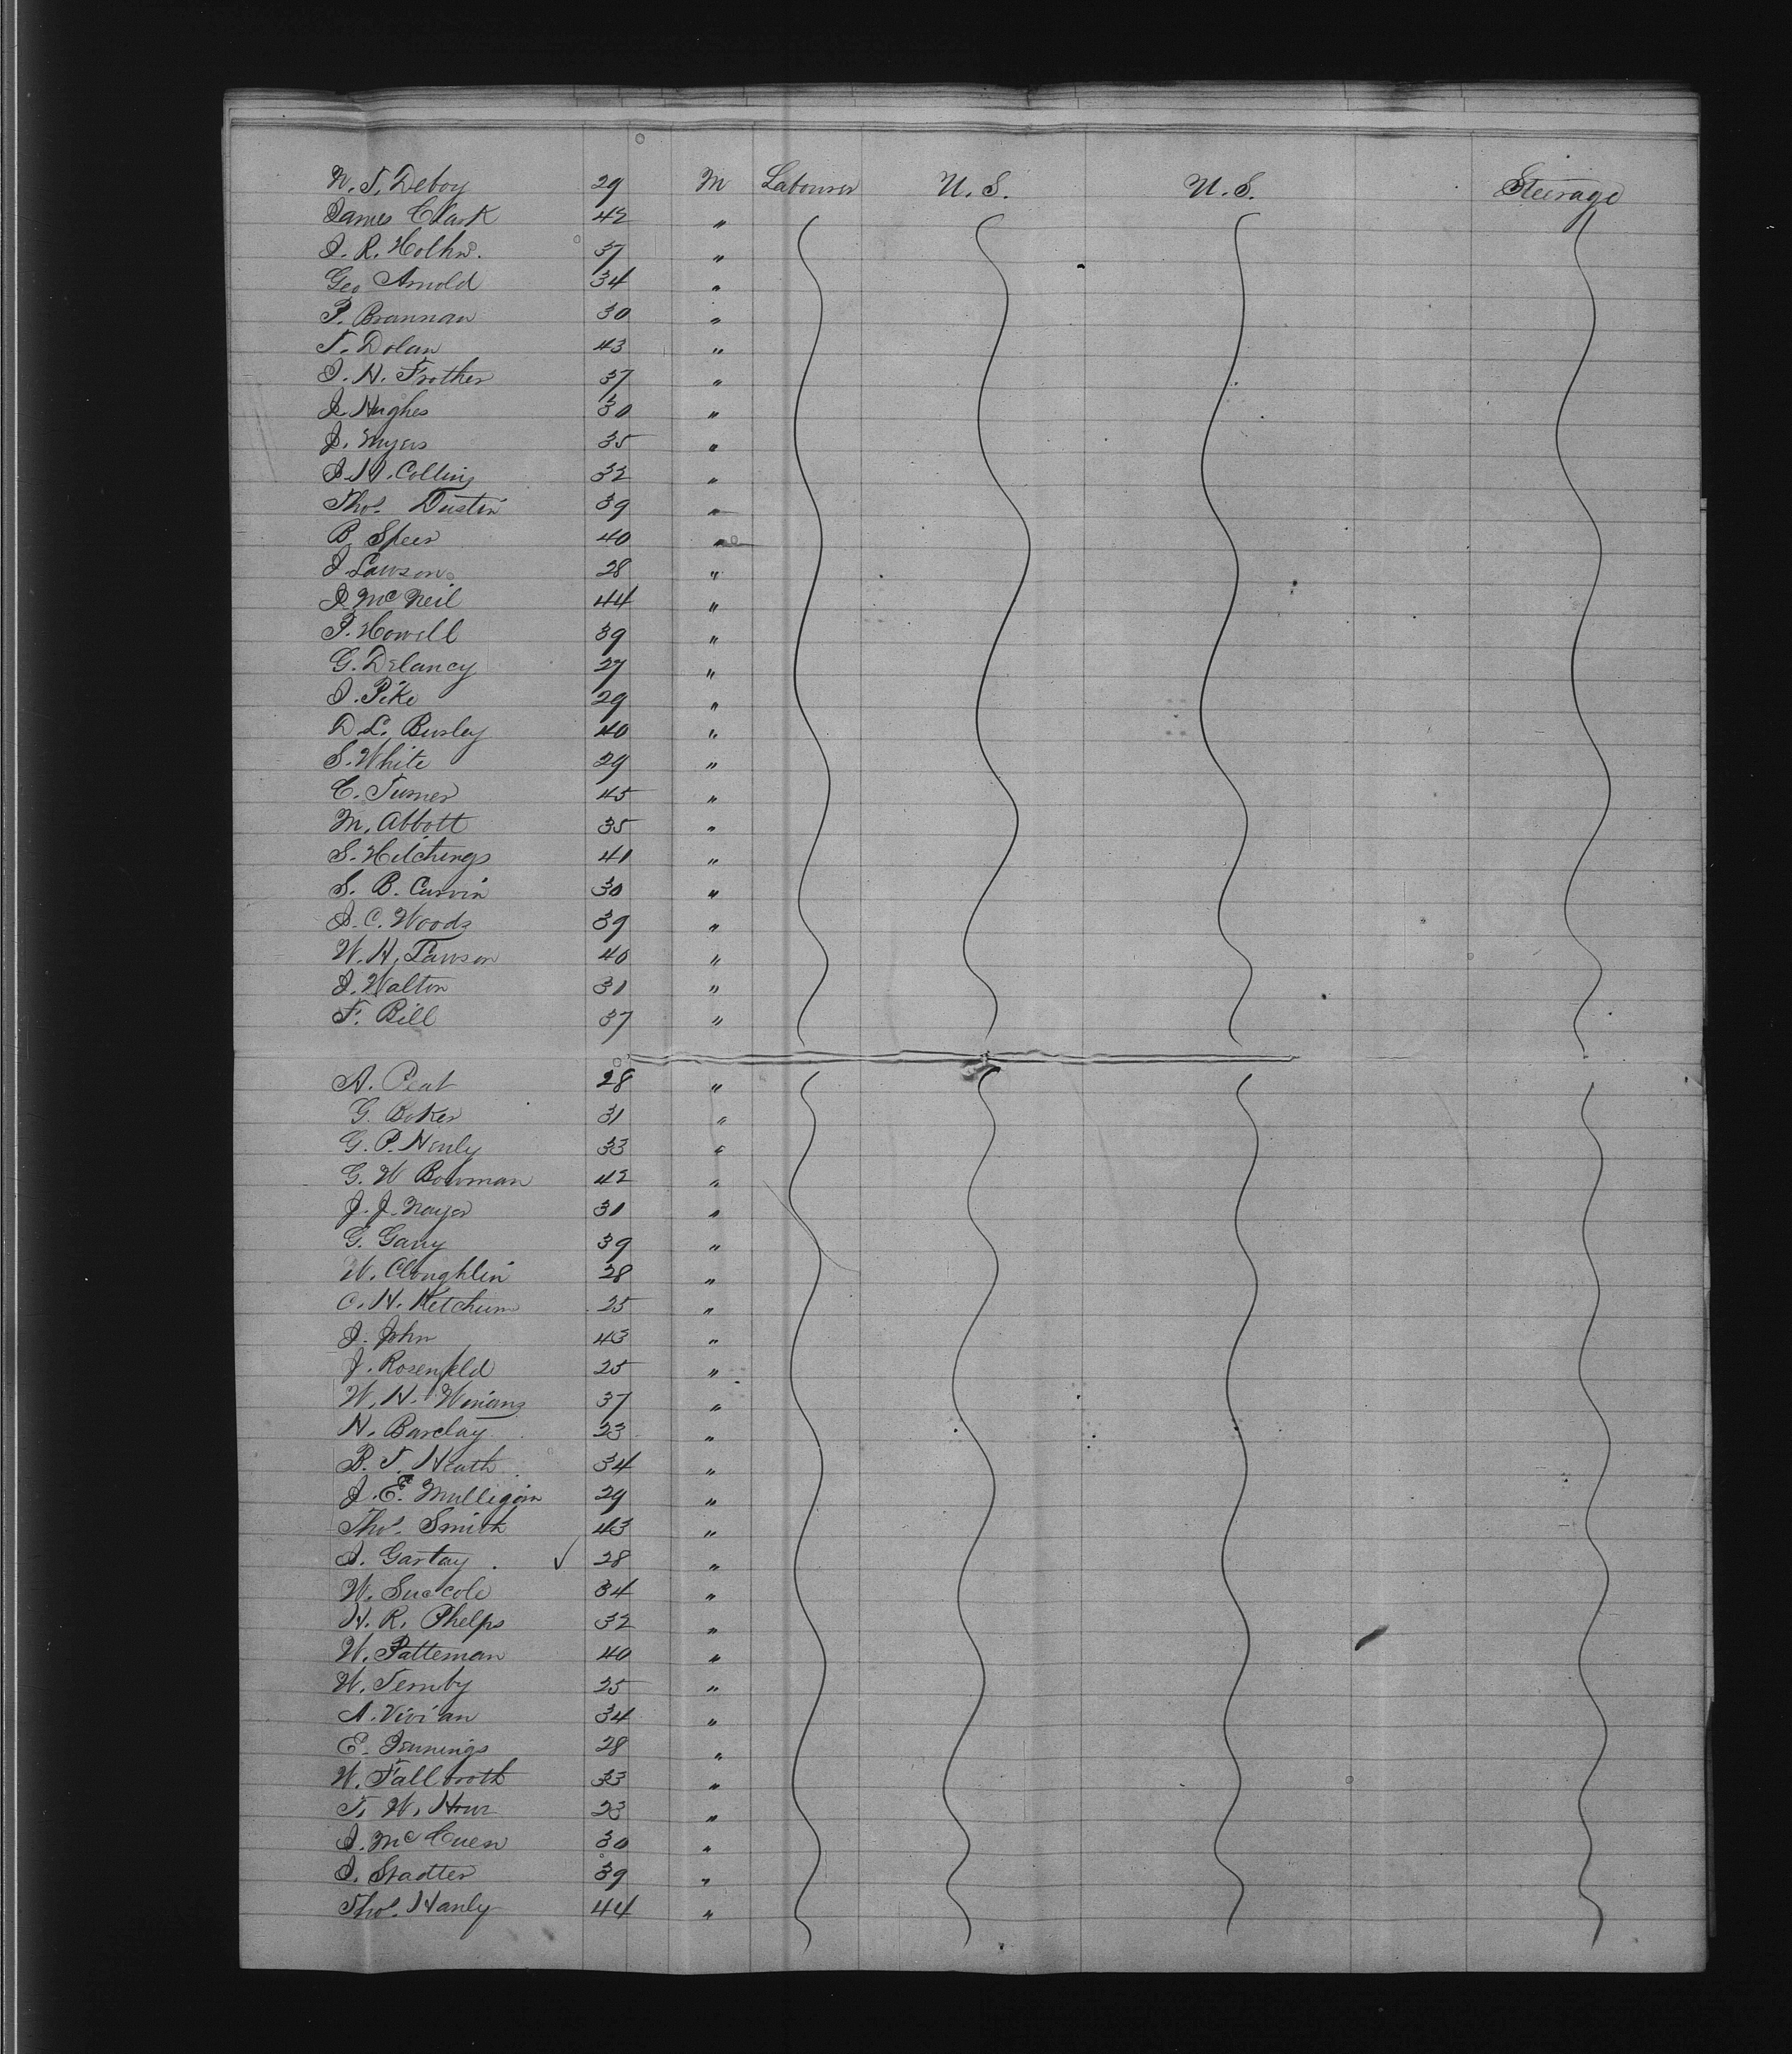 W. T. Deboy 29 M Labourer U.S. U.S. Steerage
James Clark 42 "
J. R. 37 "
Geo Arnold 34 "
P. Brannan 30 "
T. Dolan 43 "
J. H. Frother 37 "
J. Hughes 30 "
J. Myers 35 "
J. H. Collins 32 "
Thos. Dustin 39 "
B. Speer 40 "
J. Lawson 28 "
J. McNeil 44 "
P. Howell 39 "
G. Delancy 27 "
J. Pike 29 "
D. L. Bursley 40 "
S. White 29 "
C. Turner 45 "
M. Abbott 35 "
S. Hitchings 41 "
S. B. Curvin 30 "
J. C. Woods 39 "
W. H. Lawson 40 "
J. Walton 31 "
F. Bill 37 "
A. Peat 28 "
G. Boker 31 "
G. P. Henly 33 "
G. W Bowman 42 "
J. J. 31 "
G. Gany 39 "
W. Cloughlin 28 "
C. H. Ketchum 25 "
J. John 43 "
J. Rosenfeld 25 "
W. H. Winans 37 "
H. Barclay 23 "
B. T. Heath 34 "
J. E. Mulligan 29 "
Thos. Smith 43 "
J. Gartay ✓ 28 "
W. Suecole 34 "
H. R. Phelps 32 "
W. Patteman 40 "
W. Ternby 25 "
A. Vivian 34 "
E. Jennings 28 "
W. Fallbroth 33 "
T. W. 23 "
J. McCuen 30 "
J. Stadter 39 "
Thos. Hanly 44 "